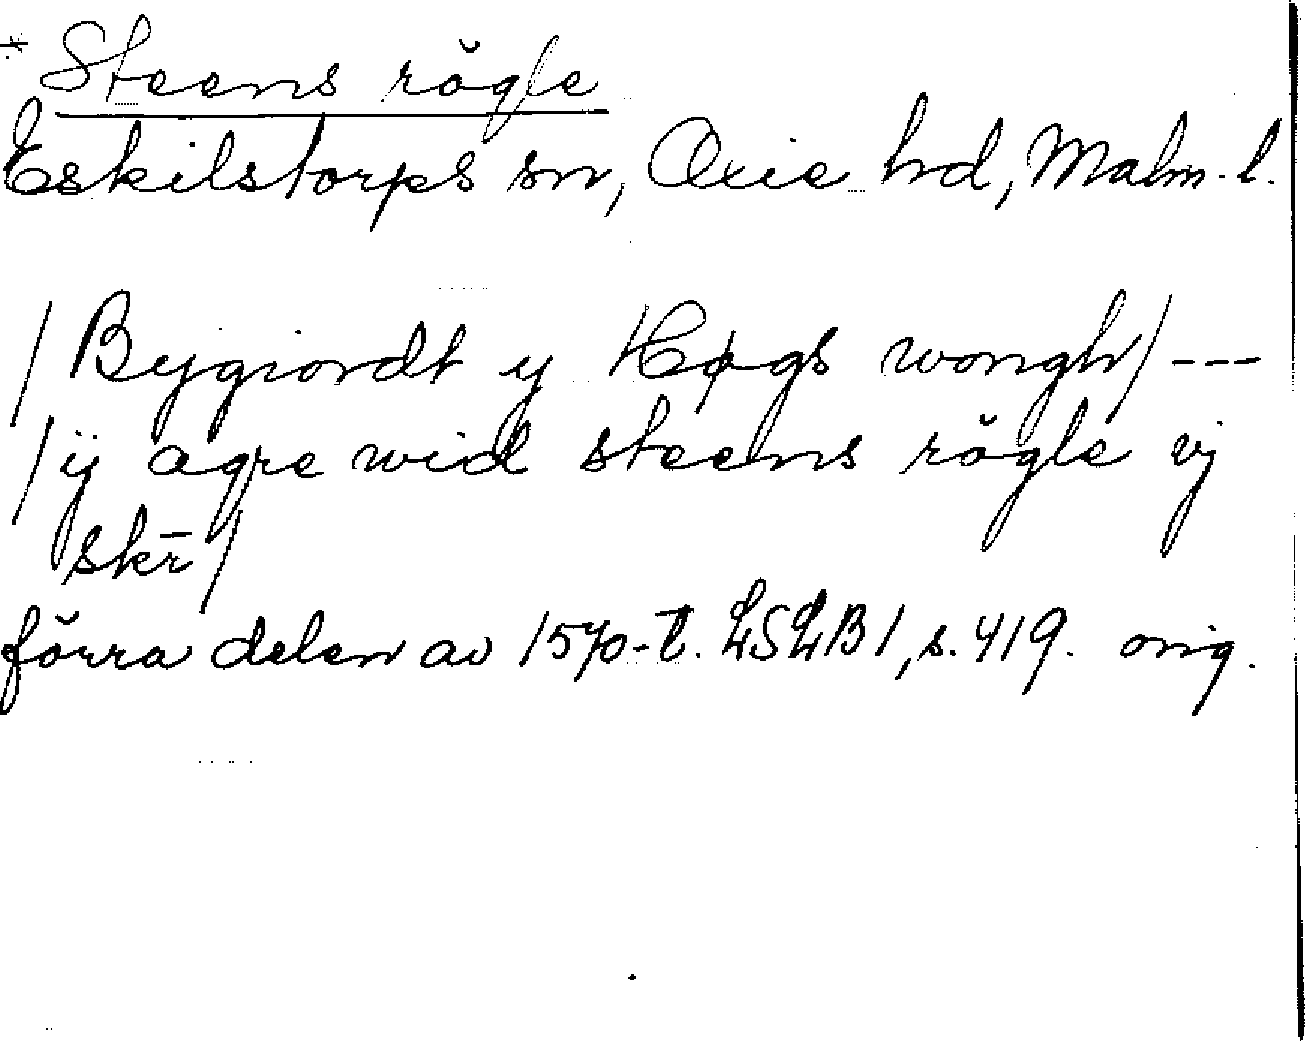 * Steens rögle
Eskilstorps sn, Oxie hd, Malm. l.
/ Bygiordt y Høgs wongh / ---
/ ij agre wid steens rögle vj
skr̄ /
förra delen av 1570-t. LSLB 1, s. 419. orig.